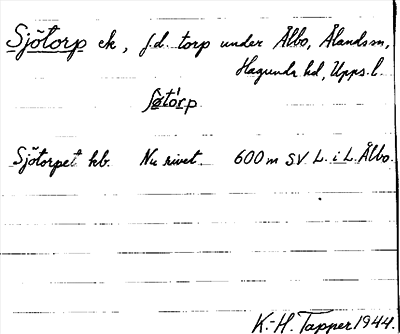 Sjötorp ek, f.d. torp under Ålbo, Ålands sn,
Hagunda hd, Upps. l.
Sjötorpet kb. Nu rivet. 600 m SV L. i L. Ålbo.
K.-H. Tapper 1944.